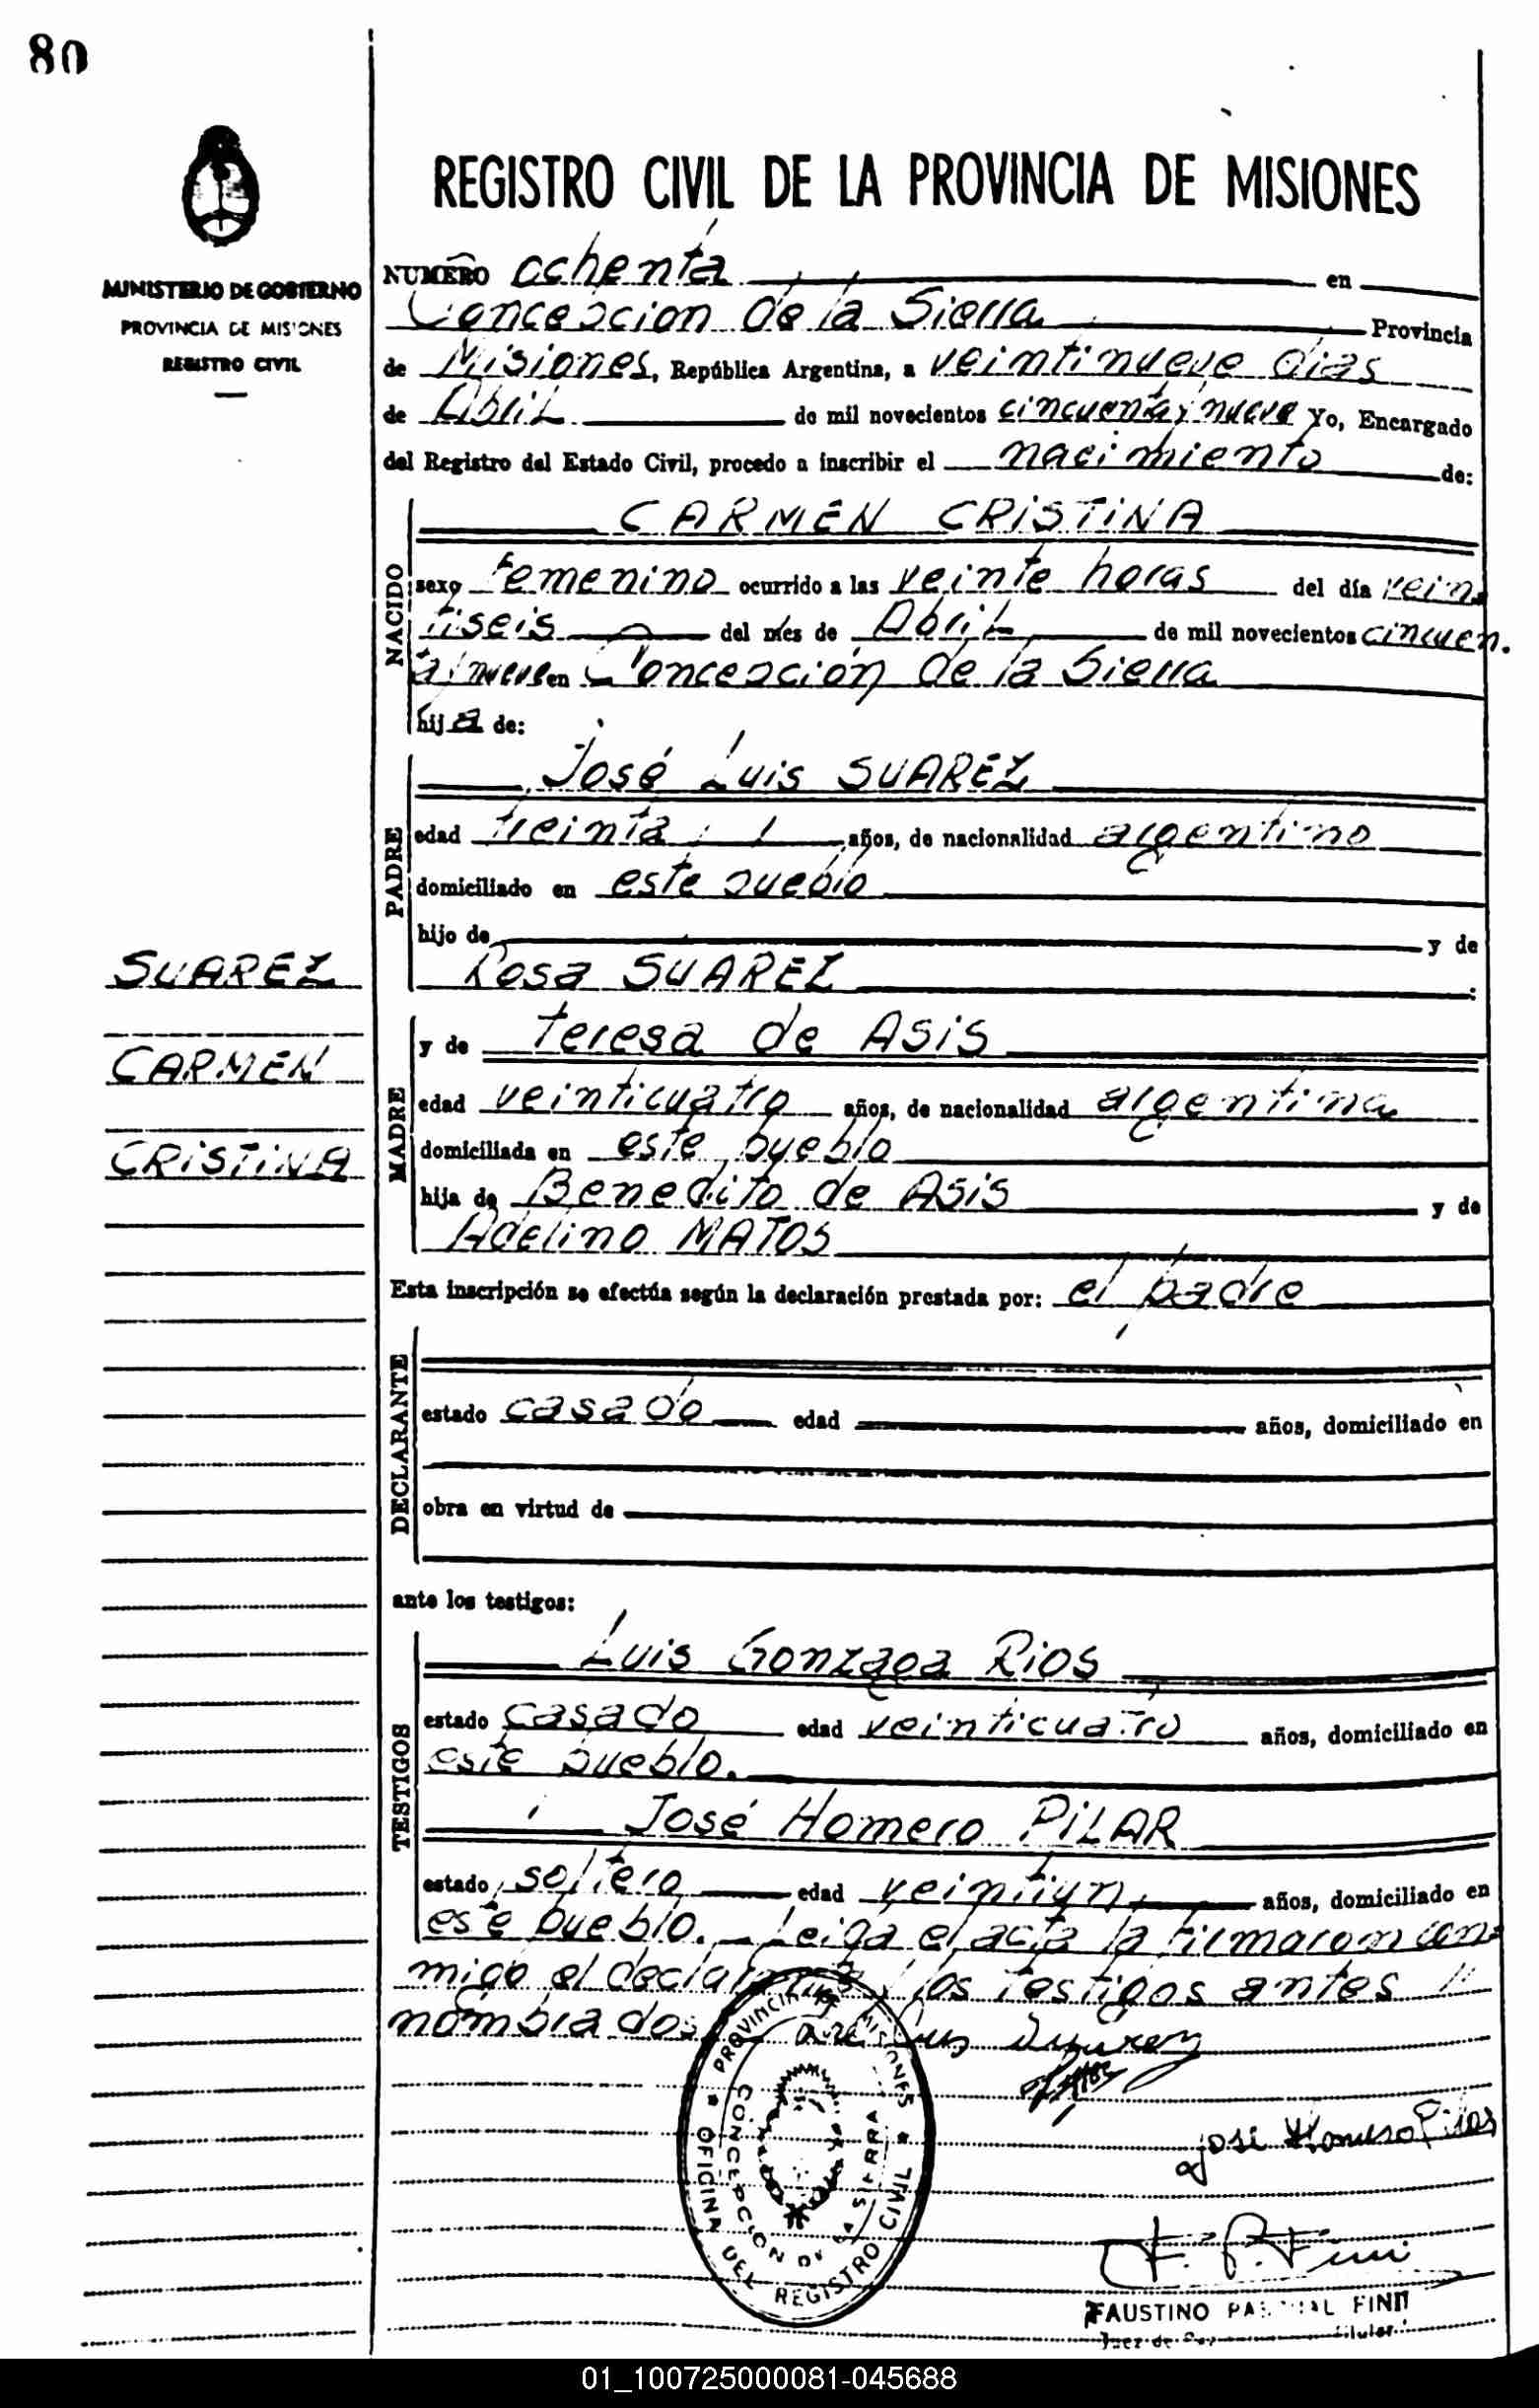 80
MINISTERIO DE GOBIERNO
PROVINCIA DE MISIONES
REGISTRO CIVIL
REGISTRO CIVIL DE LA PROVINCIA DE MISIONES
NUMERO ochenta en
Concepcion de la Sierra Provincia
de Misiones, República Argentina, a veintinueve dias
de Abril de mil novecientos cincuenta y nueve Yo, Encargado
del Registro del Estado Civil, procedo a inscribir el nacimiento de:
NACIDO
CARMEN CRISTINA
sexo femenino ocurrido a las veinte horas del día vein
tiseis del mes de Abril de mil novecientos cincuen.
ta y nueve en Concepción de la Sierra
hija de:
PADRE
José Luis SUAREZ
edad treinta años, de nacionalidad argentino
domiciliado en este pueblo
hijo de y de
Rosa SUAREZ
SUAREZ
CARMEN
CRISTINA
MADRE
y de teresa de ASIS
edad veinticuatro años, de nacionalidad argentina
domiciliada en este pueblo
hija de Benedito de ASIS y de
Adelino MATOS
Esta inscripción se efectúa según la declaración prestada por: el padre
DECLARANTE
estado casado edad años, domiciliado en
obra en virtud de
ante los testigos:
TESTIGOS
Luis Gonzaga RIOS
estado casado edad veinticuatro años, domiciliado en
este pueblo.
José Homero PILAR
estado soltero edad veintiun años, domiciliado en
este pueblo. Leida el acta la firmaron con
migo el declarante y los testigos antes
nombrados
José Luis Suarez
José Homero Pilar
F. P. Fini
PROVINCIA DE MISIONES
OFICINA DEL REGISTRO CIVIL
CONCEPCION DE LA SIERRA
FAUSTINO PASCUAL FINI
Juez de Paz titular
01_100725000081-045688